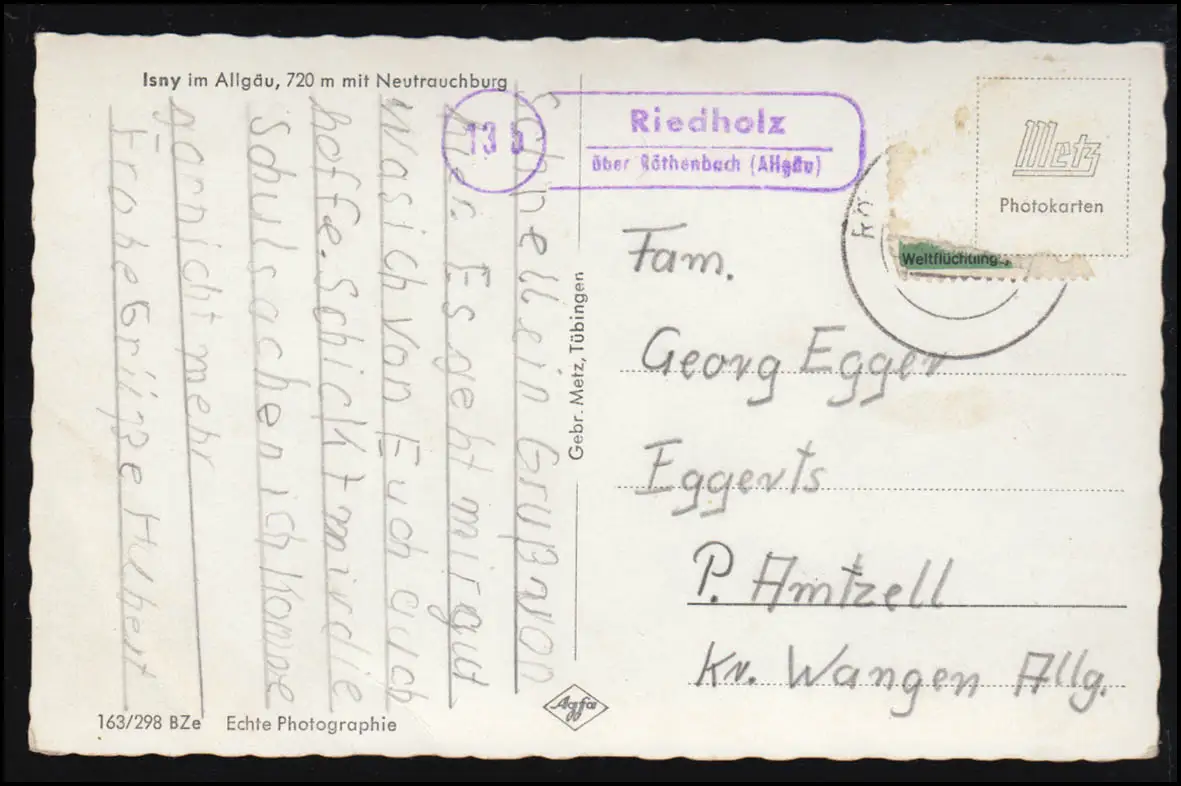 Isny im Allgäu, 720 m mit Neutrauchburg
Schnell ein Gruß von
hier. Es geht mir gut
Was ich von Euch auch
hoffe. Schickt mir die
Schulsachen ich komme
garnicht mehr
Frohe Grüße Hubert
163/298 BZe Echte Photographie
Gebr. Metz, Tübingen
Agfa
13 b
Riedholz
über Röthenbach (Allgäu)
Metz
Photokarten
Weltflüchtling
Fam.
Georg Egger
Eggerts
P. Amtzell
Kr. Wangen Allg.